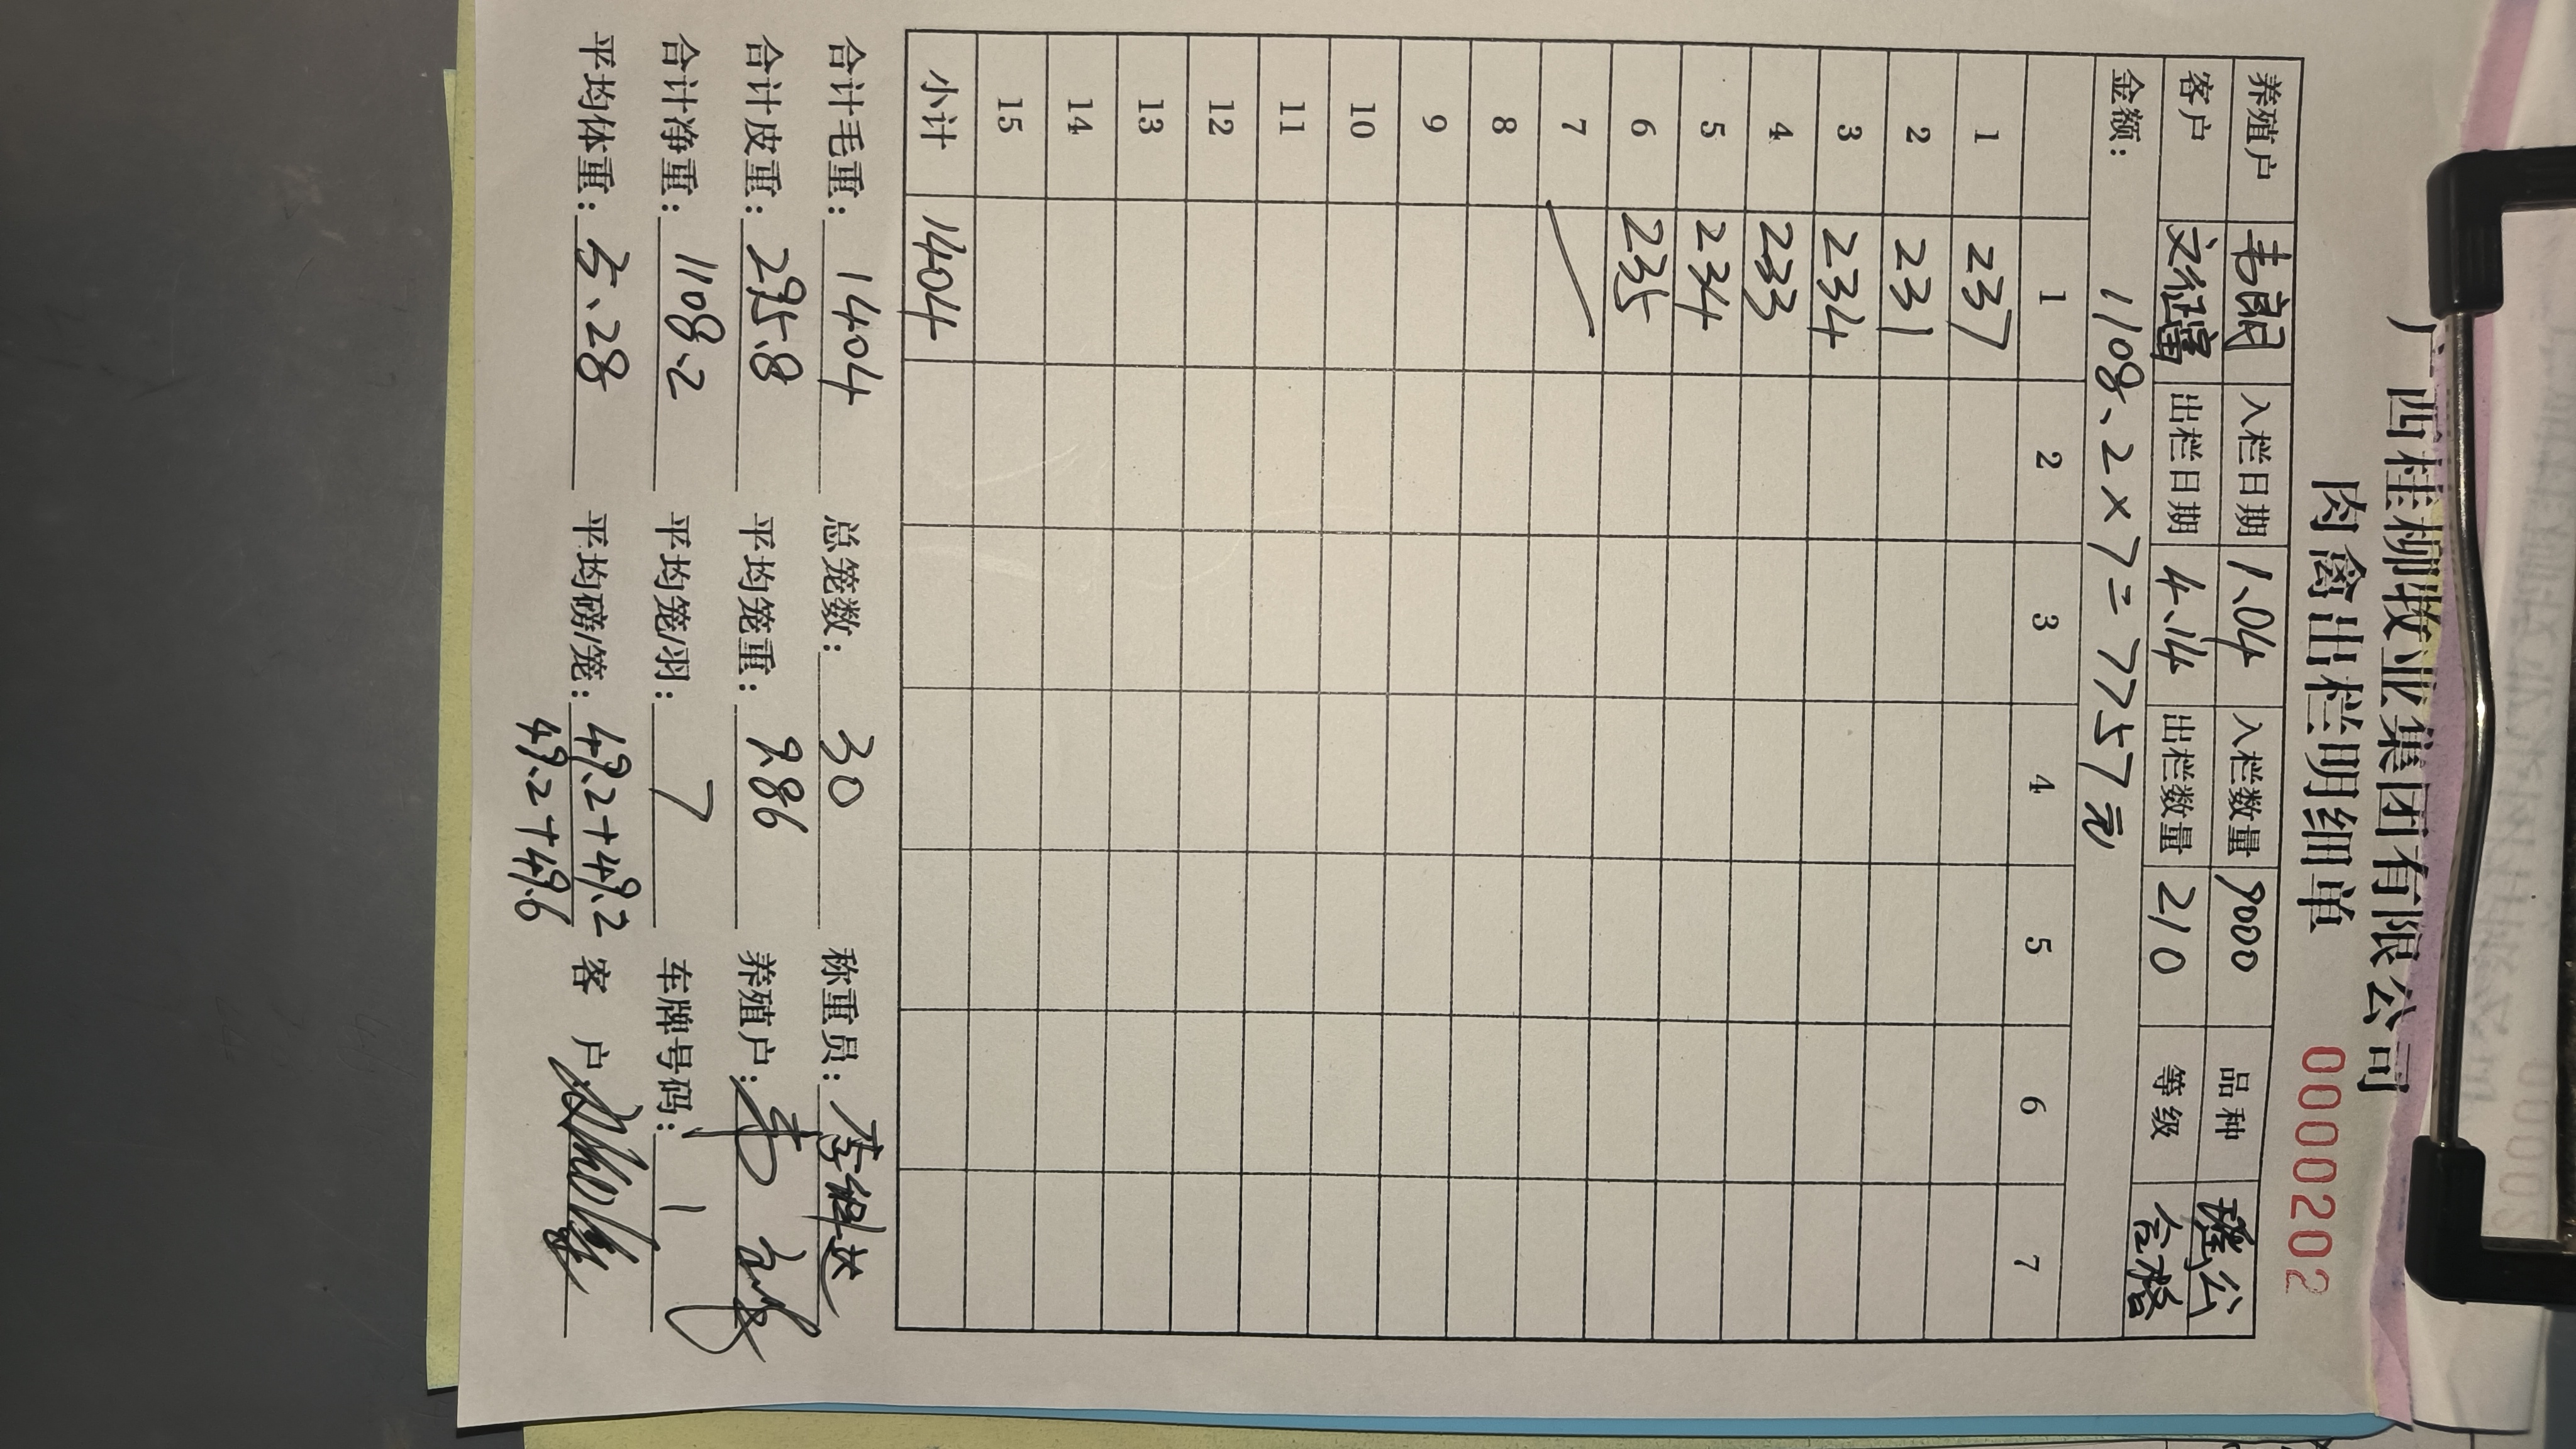 广西桂柳牧业集团有限公司
肉禽出栏明细单 0000202
养殖户 韦朗 入栏日期 1.04 入栏数量 9000 品种 瑶公
客户 文征富 出栏日期 4.14 出栏数量 210 等级 合格
金额: 1108.2×7=7757元
1 2 3 4 5 6 7
1 237
2 231
3 234
4 233
5 234
6 235
7
8
9
10
11
12
13
14
15
小计 1404
合计毛重: 1404 总笼数: 30 称重员:
合计皮重: 295.8 平均笼重: 9.86 养殖户: 韦朗
合计净重: 1108.2 平均笼/羽: 7 车牌号码:
平均体重: 5.28 平均磅/笼: 49.2+49.2 客户
49.2+49.6